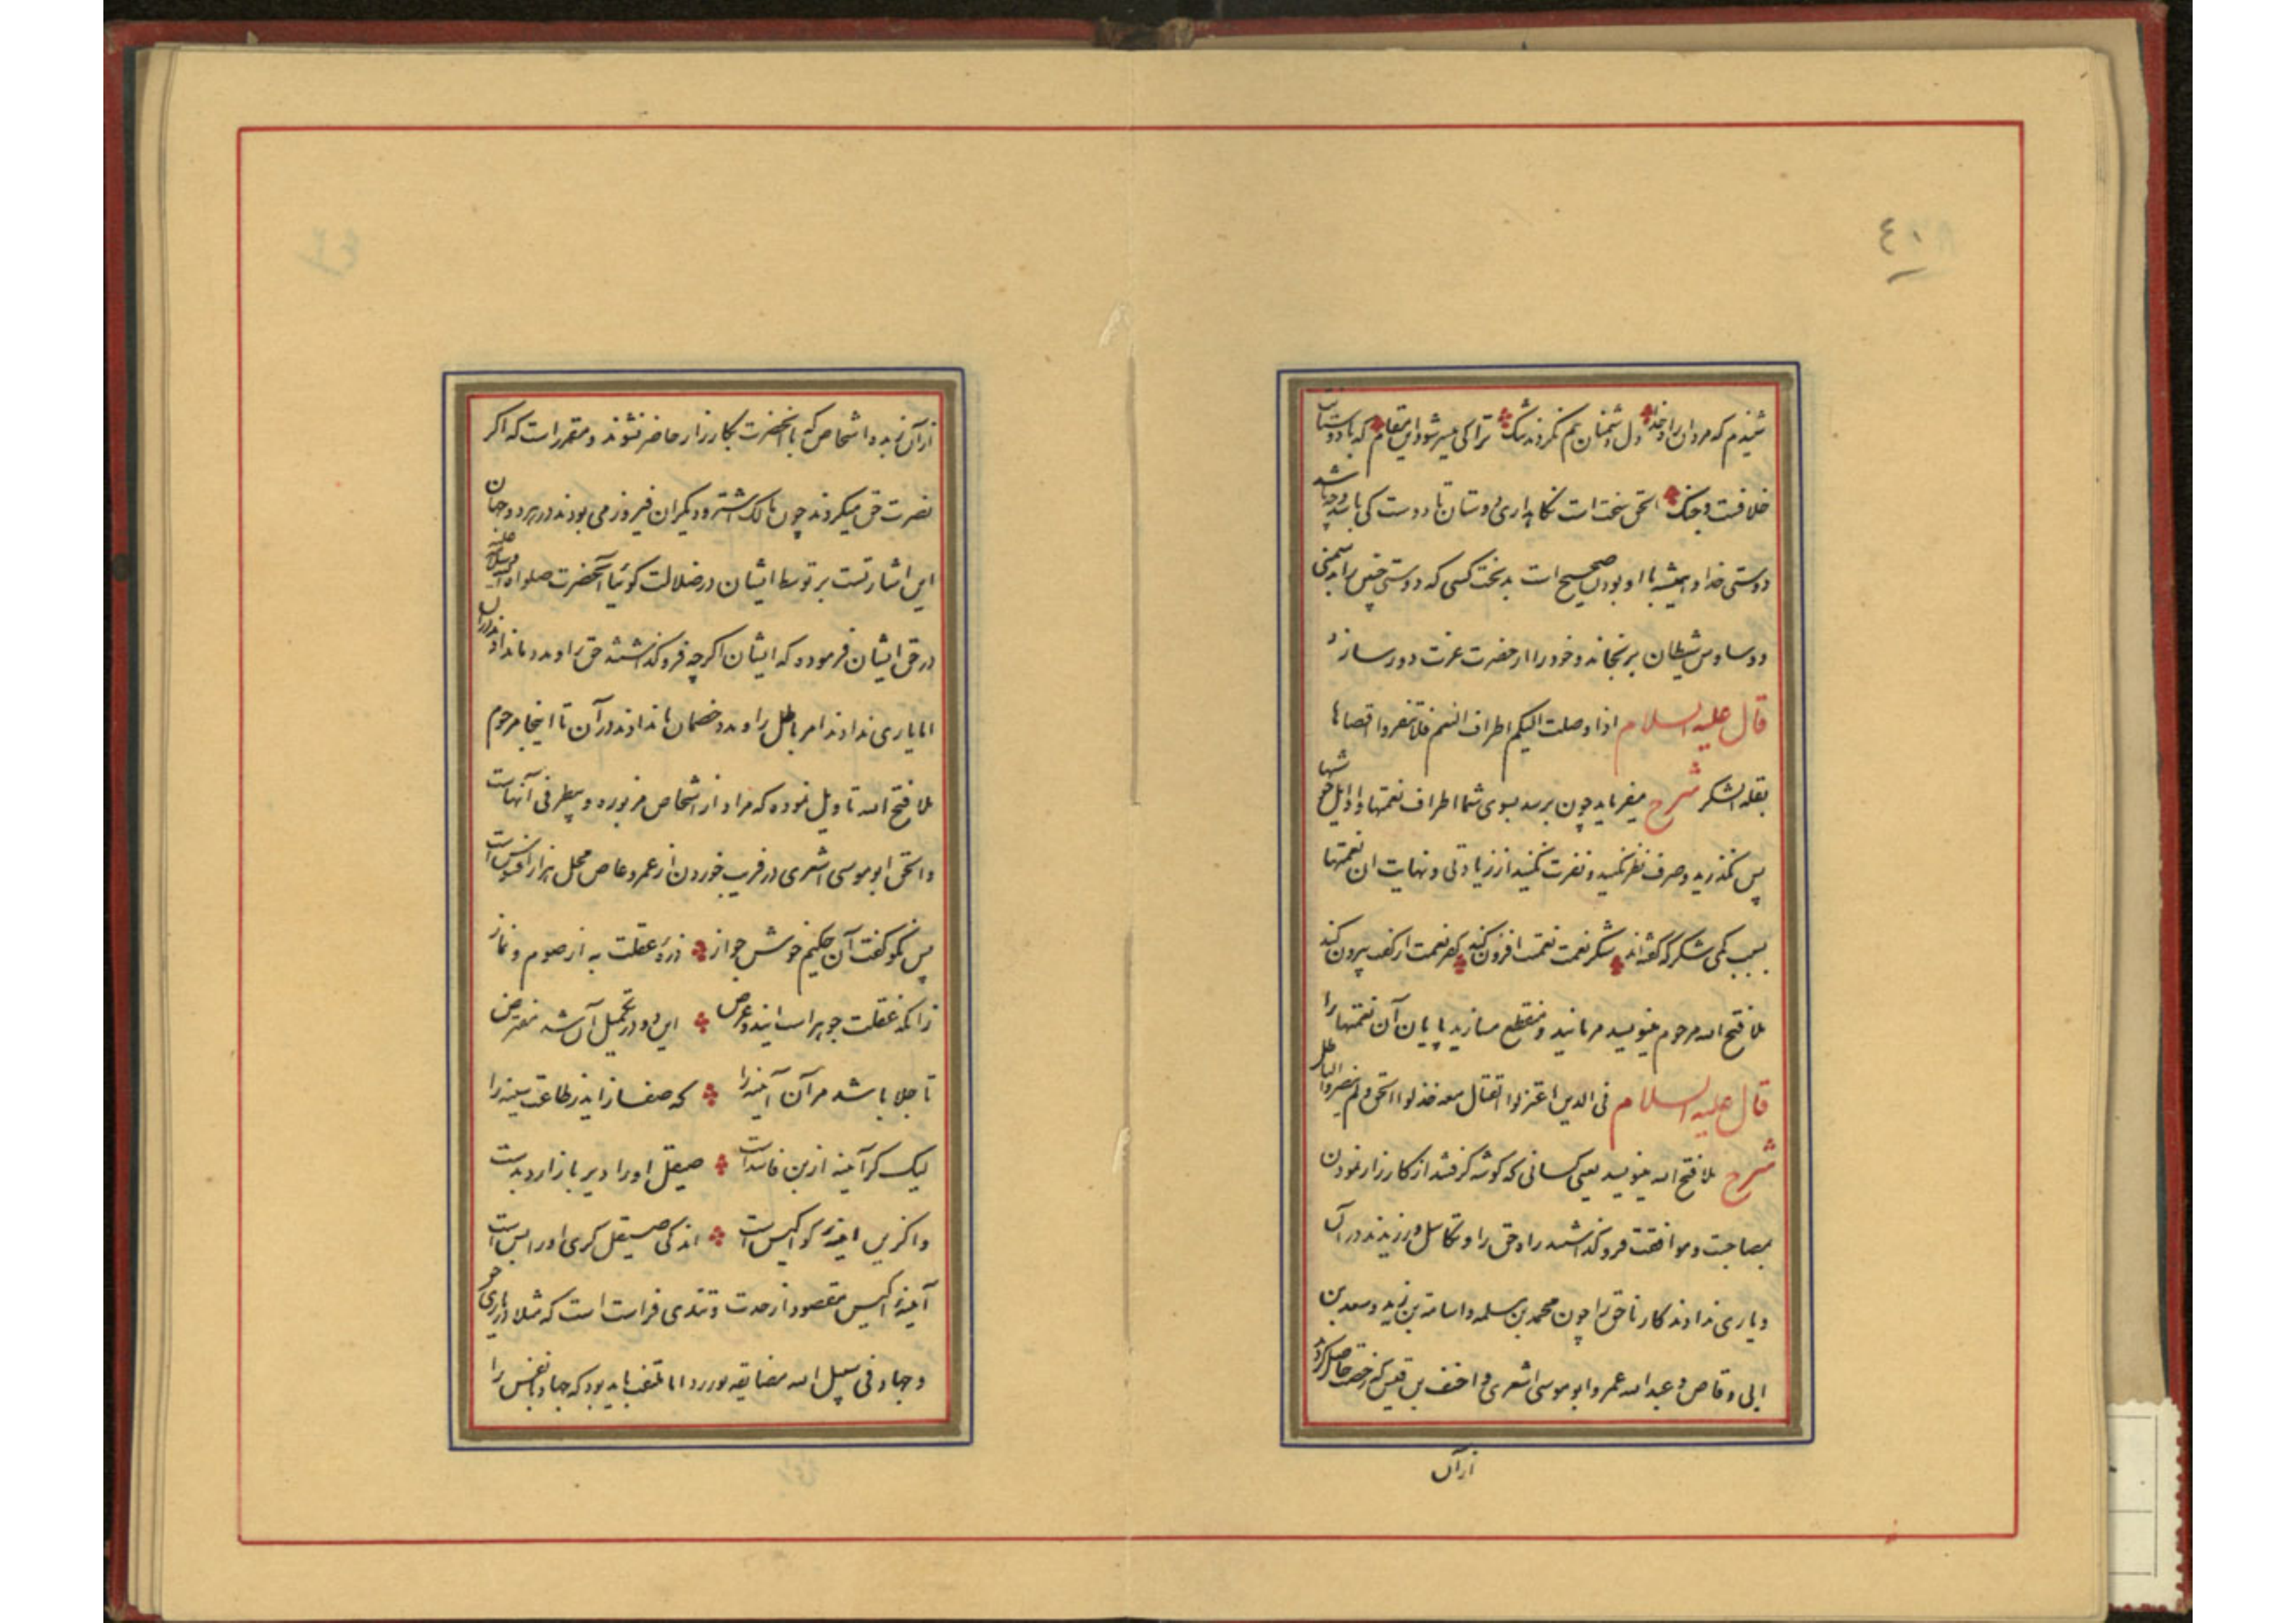 ٤٠
شنیدم که مردان راه خدا دل دشمنان هم نکردند تنگ ترا کی میسر شود این مقام که با دوستانت
خلافست و جنک الحق سخت است نکاهداری دوستان تا دوست کی باشد و چه باشد
دوستی خدا و همیشه با او بودن صحیح است بدبخت کسی که دوستی چنین را بدشمنی
و وساوس شیطان برنجاند و خود را از حضرت عزت دور سازد
قال علیه السلام اذا وصلت الیکم اطراف النعم فلا تنفروا اقصاها
بقلة الشکر شرح میفرماید چون برسد بسوی شما اطراف نعمتها و اوایل خوشیها
پس نگذرید و صرف نظر نکنید و نفرت نکنید از زیادتی و نهایت ان نعمتها
بسبب کمی شکر که گفته‌اند شکر نعمت نعمتت افزون کند کفر نعمت از کفت بیرون کند
ملا فتح الله مرحوم مینویسد مرمانید و منقطع مسازید پایان آن نعمتها را
قال علیه السلام فی الدین اعتزلوا القتال معه خذلوا الحق و لم ینصروا الباطل
شرح ملا فتح الله مینویسد یعنی کسانی که کوشه کرفتند از کارزار نمودن
بمصاحبت و موافقت فرو کذاشتند راه حق را و تکاسل ورزیدند در آن
و یاری ندادند کار ناحق را چون محمد بن مسلمه و اسامة بن زید و سعد بن
ابی وقاص و عبد الله عمر و ابو موسی اشعری و احنف بن قیس که رخصت حاصل کردند
از آن
از آن نبرد و اشخاص که با آنحضرت بکارزار حاضر نشوند و مقرر است که اکر
نصرت حق میکردند چون مالک اشتر و دیکران فیروز می بودند در هر دو جهان
این اشارتست بر توسط ایشان در ضلالت کوئیا آنحضرت صلوات الله و سلامه علیه
در حق ایشان فرموده که ایشان اکرچه فرو کذاشتند حق را و مدد ندادند در آن
اما یاری ندادند امر باطل را و مدد خصمان ندادند در آن تا اینجا مرحوم
ملا فتح الله تاویل نموده که مراد از اشخاص مزبوره و بیطرفی آنهاست
و الحق ابو موسی اشعری در فریب خوردن از عمرو عاص محل هزار افسوس است
پس نکو کفت آن حکیم خوش جواز ذره عقلت به از صوم و نماز
زانکه عقلت جوهر است ایندو عرض این دو در تکمیل آن شد مفترض
تا جلا باشد مر آن آئینه را که صفا زاید ز طاعت سینه را
لیک کر آئینه از بن فاسد است صیقل او را دیر باز ارد بدست
و اکزین ایینه کو اکیس است اندکی صیقل کری او را بس است
آئینه اکیس مقصود از حدت و تندی فراست است که مثلا در یاری حق
و جهاد فی سبیل الله مضایقه نورزد اما ملتفت باید بود که جهاد با نفس را